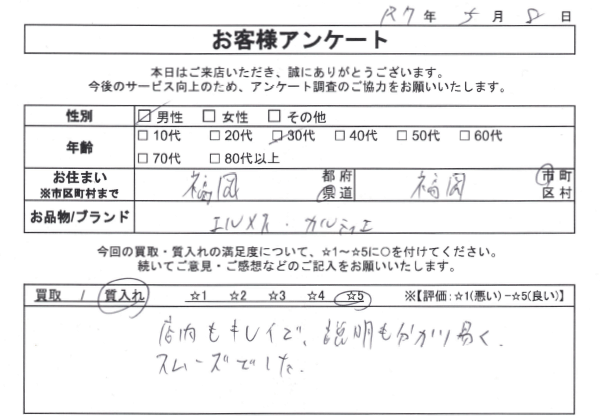 R7年 5月 8日
お客様アンケート
本日はご来店いただき、誠にありがとうございます。
今後のサービス向上のため、アンケート調査のご協力をお願いいたします。
性別 ☑男性 □女性 □その他
年齢 □10代 □20代 ☑30代 □40代 □50代 □60代
□70代 □80代以上
お住まい ※市区町村まで 福岡 都府県道 福岡 市町区村
お品物/ブランド エルメス・カルティエ
今回の買取・質入れの満足度について、☆1～☆5に○を付けてください。
続いてご意見・ご感想などのご記入をお願いいたします。
買取 / 質入れ ☆1 ☆2 ☆3 ☆4 ☆5 ※【評価：☆1(悪い)－☆5(良い)】
店内もキレイで、説明も分かり易く、
スムーズでした。